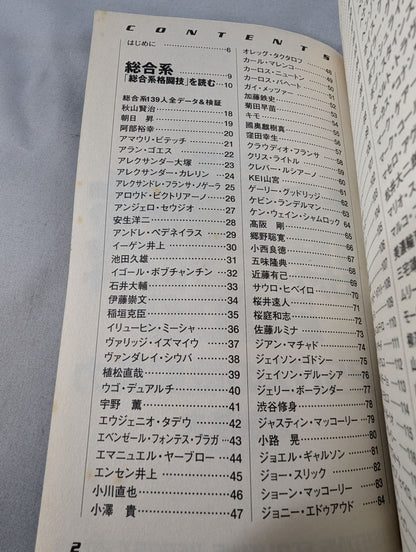 CONTENTS
はじめに……6
総合系……9
「総合系格闘技」を読む……10
総合系139人全データ＆検証
秋山賢治……18
朝日　昇……19
阿部裕幸……20
アマウリ・ビテッチ……21
アラン・ゴエス……22
アレクサンダー大塚……23
アレクサンダー・カレリン……24
アレクサンドレ・フランサ・ノゲーラ……25
アロウド・ビクトリアーノ……26
アンジェロ・セウジオ……27
安生洋二……28
アンドレ・ペデネイラス……29
イーゲン井上……30
池田久雄……31
イゴール・ボブチャンチン……32
石井大輔……33
伊藤崇文……34
稲垣克臣……35
イリューヒン・ミーシャ……36
ヴァリッジ・イズマイウ……37
ヴァンダレイ・シウバ……38
植松直哉……39
ウゴ・デュアルチ……40
宇野　薫……41
エウジェニオ・タデウ……42
エベンゼール・フォンテス・ブラガ……43
エマニュエル・ヤーブロー……44
エンセン井上……45
小川直也……46
小澤　貴……47
オレッグ・タクタロフ……48
カール・マレンコ……49
カーロス・ニュートン……50
カーロス・バヘート……51
ガイ・メッツァー……52
加藤鉄史……53
菊田早苗……54
キモ……55
國奥麒樹真……56
窪田幸生……57
クラウディオ・フランサ……58
クリス・ライトル……59
クレバー・ルシアーノ……60
KEI山宮……61
ゲーリー・グッドリッジ……62
ケビン・ランデルマン……63
ケン・ウェイン・シャムロック……64
高阪　剛……65
郷野聡寛……66
小西良徳……67
五味隆典……68
近藤有己……69
サウロ・ヒベイロ……70
桜井速人……71
桜庭和志……72
佐藤ルミナ……73
ジアン・マチャド……74
ジェイソン・ゴドシー……75
ジェイソン・デルーシア……76
ジェリー・ボーランダー……77
渋谷修身……78
ジャスティン・マッコーリー……79
小路　晃……80
ジョエル・ギャルソン……81
ジョー・スリック……82
ショーン・マッコーリー……83
ジョニー・エドゥアウド……84
2